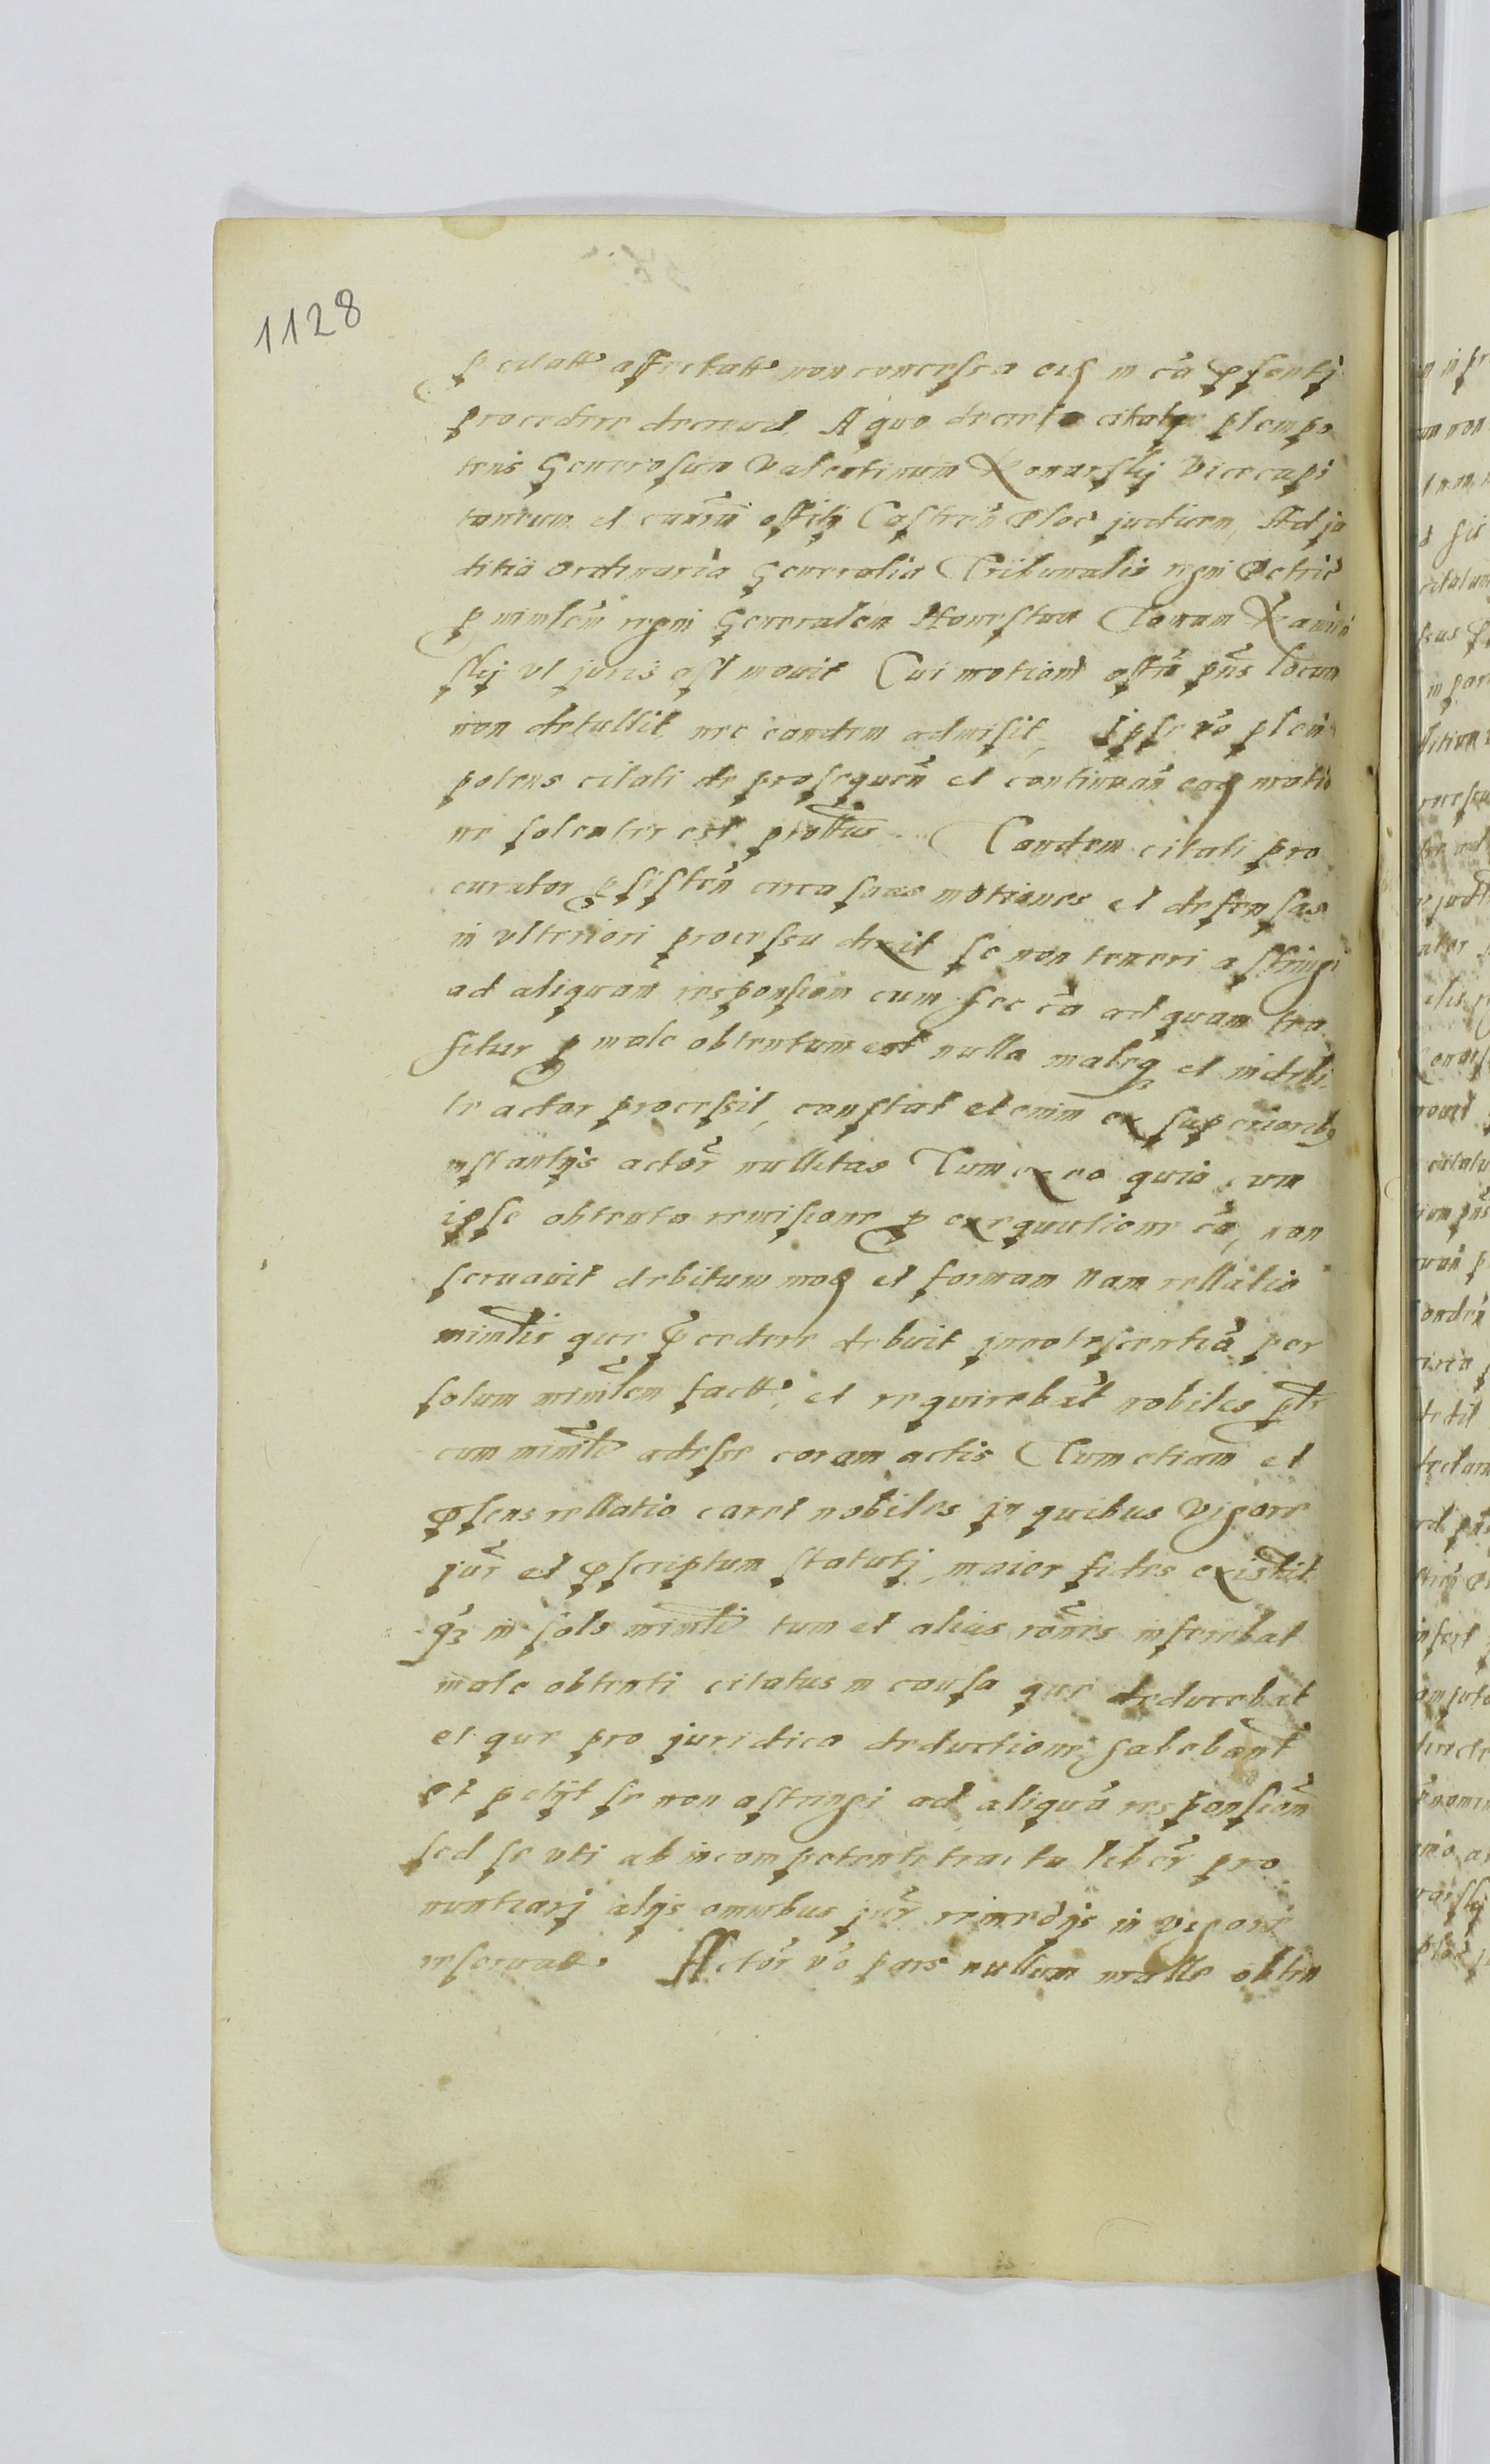 1128
p citatt affectatt non concessa eiq in ca p̄senti
procedere decrevit A quo decreto citatq plenipo
tens Generosum Valentinum Konarskij Vicecapi
taneum et causar̄ officij Castren̄ Ploc̄ judicem, Ad ju
ditia ordinaria Generalia Tribunalis regni Petric̄
p minlem̄ regni Generalem Honestum
skij vt juris est movit Cui motioni offm̄ pn̄s locum
non detullit nec eandem admisit, Ipse vo plenī
potens citati de prosequen̄ et continuan̄ eaq motio
ne solenter est prottus. Tandem citati pro
curator p̄sisten̄ circa suas motiones et defensas
in vlteriori processu dixit se non teneri astringi
ad aliquam responsiom cum hec ca ad quam tra
hitur p male obtentum est nulla maleq et indebi
te actor processit, constat etenim ex superioribq
instantijs actor̄ nullitas Tum ex eo quia cum
ipse obtenta remissione p exequutione ca, non
servavit debitum moq et formam Nam rellatio
minlis̄ que p̄cedere debuit innotescentia per
solum minlem̄ factt, et requirebat nobiles
cum minlī adesse coram actis Tum etiam et
p̄sens rellatio caret nobiles in quibus vigore
jur̄ et p̄scriptum statutj, maior fides existit
qz in solo minlī tum et alias rones inferebat
male obtenti citatus in causa que deducebat
et que pro juridica deductione habebant
et petijt se non astringi ad aliqua responsiom̄
sed se vti ab incompetente tractu liber̄ pro
nuntiarj alijs omnibus jur̄ remedijs in vigore
reservatt. Actor̄ vo pars nullum malle obten